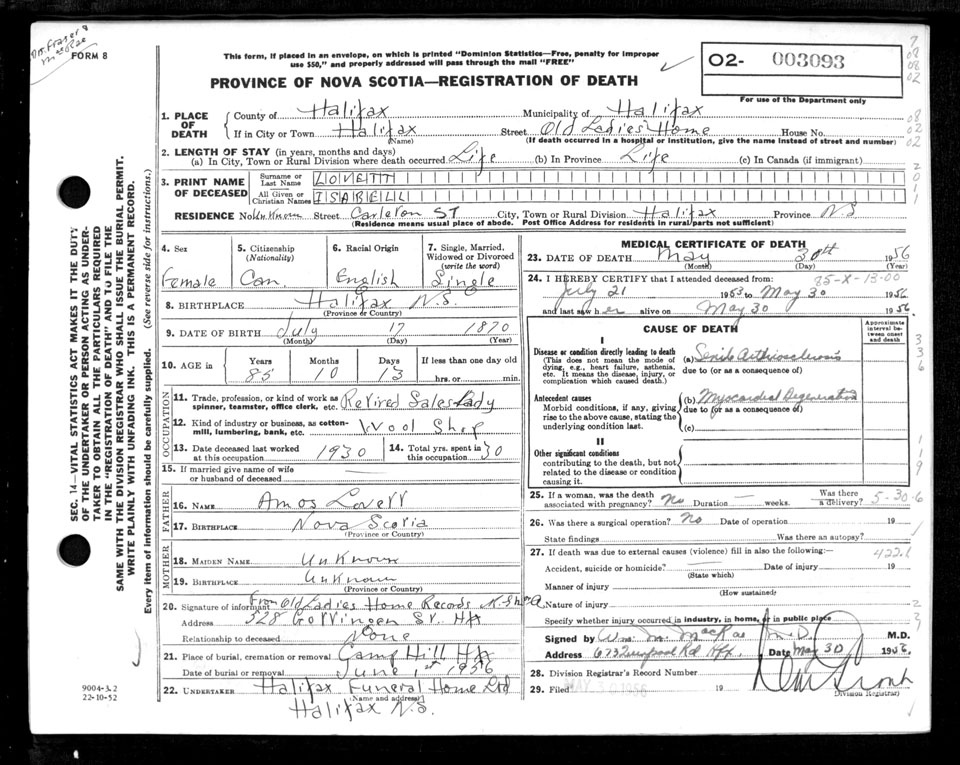 FORM 8
This form, if placed in an envelope, on which is printed "Dominion Statistics—Free, penalty for improper
use $50," and properly addressed will pass through the mail "FREE"
PROVINCE OF NOVA SCOTIA—REGISTRATION OF DEATH
02- 003093
For use of the Department only
SEC. 14—VITAL STATISTICS ACT MAKES IT THE DUTY
OF THE UNDERTAKER OR PERSON ACTING AS UNDER-
TAKER TO OBTAIN ALL THE PARTICULARS REQUIRED
IN THE "REGISTRATION OF DEATH" AND TO FILE THE
SAME WITH THE DIVISION REGISTRAR WHO SHALL ISSUE THE BURIAL PERMIT.
WRITE PLAINLY WITH UNFADING INK. THIS IS A PERMANENT RECORD.
Every item of information should be carefully supplied. (See reverse side for instructions.)
1. PLACE OF DEATH
County of Halifax Municipality of Halifax
If in City or Town Halifax Street Old Ladies Home House No.
(Name) (If death occurred in a hospital or institution, give the name instead of street and number)
2. LENGTH OF STAY (in years, months and days)
(a) In City, Town or Rural Division where death occurred Life (b) In Province Life (c) In Canada (if immigrant)
3. PRINT NAME OF DECEASED
Surname or Last Name LOVETT
All Given or Christian Names ISABELL
RESIDENCE No. Unknown Street Carleton ST City, Town or Rural Division Halifax Province N.S
(Residence means place of abode. Post Office Address for residents in rural parts not sufficient)
4. Sex Female
5. Citizenship (Nationality) Can.
6. Racial Origin English
7. Single, Married, Widowed or Divorced (write the word) Single
8. BIRTHPLACE Halifax N.S.
(Province or Country)
9. DATE OF BIRTH July 17 1870
(Month) (Day) (Year)
10. AGE in Years 85 Months 10 Days 13 If less than one day old hrs. or min.
OCCUPATION
11. Trade, profession, or kind of work as spinner, teamster, office clerk, etc. Retired Sales Lady
12. Kind of industry or business, as cotton-mill, lumbering, bank, etc. Wool Shop
13. Date deceased last worked at this occupation 1930
14. Total yrs. spent in this occupation 30
15. If married give name of wife or husband of deceased —
FATHER
16. NAME Amos Lovett
17. BIRTHPLACE Nova Scotia
(Province or Country)
MOTHER
18. MAIDEN NAME Unknown
19. BIRTHPLACE Unknown
(Province or Country)
20. Signature of informant From Old Ladies Home Records
Address 528 Gottingen St. Hfx
Relationship to deceased None
21. Place of burial, cremation or removal Camp Hill Hfx
Date of burial or removal June 1st 1956
22. UNDERTAKER Halifax Funeral Home Ltd
(Name and address)
Halifax N.S.
9004-3.2
22-10-52
MEDICAL CERTIFICATE OF DEATH
23. DATE OF DEATH May 30th 1956
(Month) (Day) (Year)
85-X-13-00
24. I HEREBY CERTIFY that I attended deceased from:
July 21 1953 to May 30 1956
and last saw her alive on May 30 1956.
CAUSE OF DEATH
Approximate interval between onset and death
I
Disease or condition directly leading to death
(This does not mean the mode of dying, e.g., heart failure, asthenia, etc. It means the disease, injury, or complication which caused death.)
(a) Senile Arthriosclerosis
due to (or as a consequence of)
Antecedent causes
Morbid conditions, if any, giving rise to the above cause, stating the underlying condition last.
(b) Myocardial Degeneration
due to (or as a consequence of)
(c)
II
Other significant conditions
contributing to the death, but not related to the disease or condition causing it.
25. If a woman, was the death associated with pregnancy? No Duration — weeks. Was there a delivery? 5-30-6
26. Was there a surgical operation? No Date of operation 19
State findings Was there an autopsy?
27. If death was due to external causes (violence) fill in also the following:— 422.1
Accident, suicide or homicide? Date of injury 19
(State which)
Manner of injury
(How sustained)
Nature of injury
Specify whether injury occurred in industry, in home, or in public place
Signed by Wm. M. MacRae M.D. M.D.
Address 673 Liverpool Rd Hfx. Date May 30 1956
28. Division Registrar's Record Number
29. Filed MAY 30 1956 19
Division Registrar)